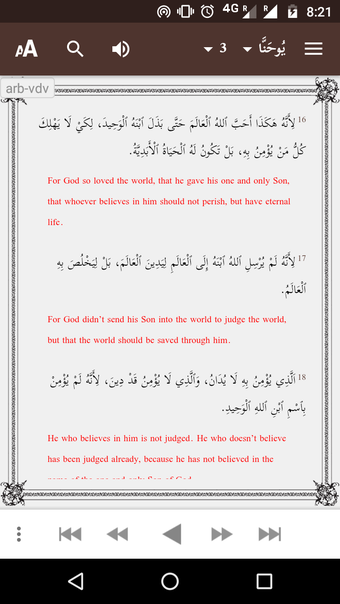 4G R R 8:21
AA 3 يُوحَنَّا
arb-vdv
16 لِأَنَّهُ هَكَذَا أَحَبَّ ٱللهُ ٱلْعَالَمَ حَتَّى بَذَلَ ٱبْنَهُ ٱلْوَحِيدَ، لِكَيْ لَا يَهْلِكَ
كُلُّ مَنْ يُؤْمِنُ بِهِ، بَلْ تَكُونُ لَهُ ٱلْحَيَاةُ ٱلْأَبَدِيَّةُ.
For God so loved the world, that he gave his one and only Son,
that whoever believes in him should not perish, but have eternal
life.
17 لِأَنَّهُ لَمْ يُرْسِلِ ٱللهُ ٱبْنَهُ إِلَى ٱلْعَالَمِ لِيَدِينَ ٱلْعَالَمَ، بَلْ لِيَخْلُصَ بِهِ
ٱلْعَالَمُ.
For God didn’t send his Son into the world to judge the world,
but that the world should be saved through him.
18 اَلَّذِي يُؤْمِنُ بِهِ لَا يُدَانُ، وَٱلَّذِي لَا يُؤْمِنُ قَدْ دِينَ، لِأَنَّهُ لَمْ يُؤْمِنْ
بِٱسْمِ ٱبْنِ ٱللهِ ٱلْوَحِيدِ.
He who believes in him is not judged. He who doesn’t believe
has been judged already, because he has not believed in the
name of the one and only Son of God